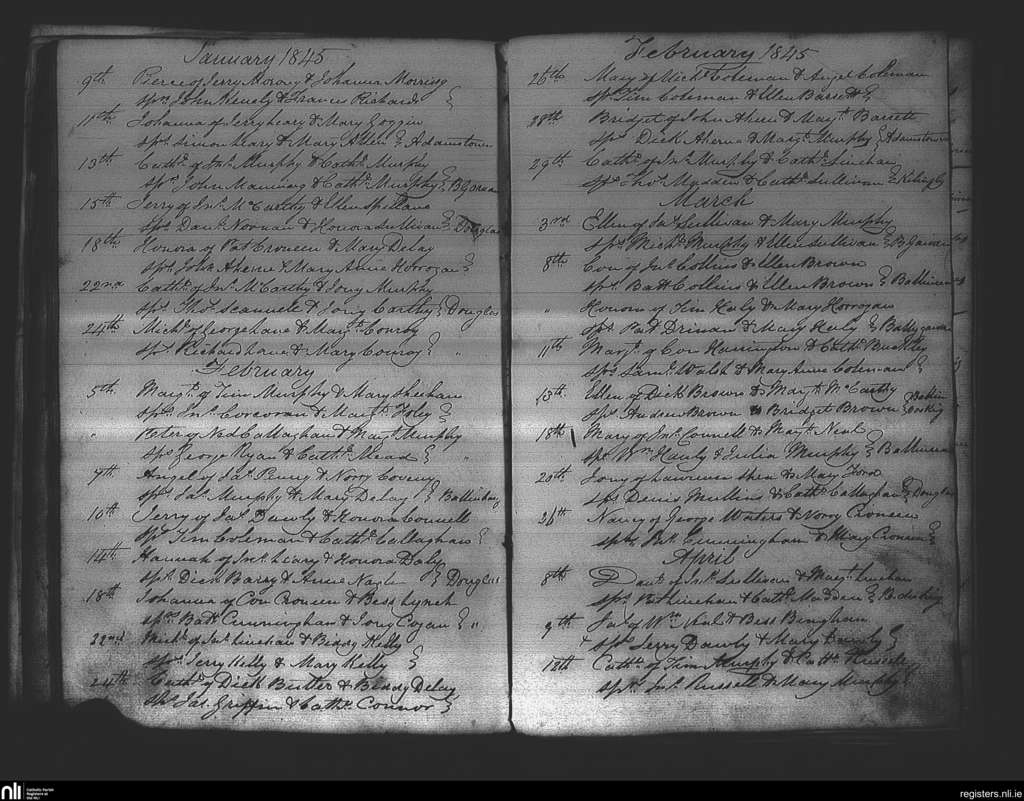 January 1845
9th Pierce of Jerry & Johanna
sprs John & Francis Richards
11th Johanna of Jerry Leary & Mary Goggin
sprs Simon Leary & Mary Allen Adamstown
13th Cathe. of Jno. Murphy & Cathe. Murphy
sprs John Manning & Cathe. Murphy
15th Jerry of Jno. McCarthy & Ellen Spellane
sprs Danl. Noonan & Honora Sullivan Douglas
18th Honora of Pat Croneen & Mary Delay
sprs John Aherne & Mary Anne Horrogan
22nd Cathe. of Jno. McCarthy & Jony Murphy
sprs Thos. Scannell & Jony Carthy Douglas
24th Michl. of George Lane & Margt. Conroy
sprs Richard Lane & Mary Conroy "
February
5th Margt. of Tim Murphy & Mary Sheehan
sprs Jno. Corcoran & Margt. Foley
" Peter of Ned Callaghan & Margt. Murphy
sprs George Ryan & Cathe. Mead "
7th Angel of Jas. Penny & Norry
sprs Jas. Murphy & Mary Delay
10th Jerry of Jas. Dawly & Honora Connell
sprs Tim Coleman & Cathe. Callaghan
14th Hannah of Jno. Leary & Honora Daly
sprs Dick Barry & Anne Nagle Douglas
18th Johanna of Con Croneen & Bess Lynch
sprs Batt Cunningham & Jony Cogan "
22nd Michl. of Jno. Linehan & Biddy Kelly
sprs Jerry Kelly & Mary Kelly
24th Cathe. of Dick Butler & Biddy Delay
sprs Jas. Griffin & Cathe. Connor
February 1845
26th Mary of Michl. Coleman & Angel Coleman
sprs Tim Coleman & Ellen Barrett
28th Bridget of John Ahern & Margt. Barrett
sprs Dick Aherne & Margt. Murphy Adamstown
29th Cathe. of Jno. Murphy & Cathe. Linehan
sprs Thos. Madden & Cathe. Sullivan
March
3rd Ellen of Jas. Sullivan & Mary Murphy
sprs Michl. Murphy & Ellen Sullivan
8th Con of Jno. Collins & Ellen Brown
sprs Batt Collins & Ellen Brown
" Honora of Tim Haly & Mary Horrogan
sprs Pat Drinan & Mary Haly
11th Margt. of Con Harrington & Cathe. Buckley
sprs Saml. Walsh & Mary Anne Coleman
13th Ellen of Dick Brown & Margt. McCarthy
sprs Andrew Brown & Bridget Brown
18th Mary of Jno. Connell & Margt. Neal
sprs Wm. Healy & Julia Murphy
20th Jony of Lawrence & Mary Ford
sprs Denis Mullins & Cathe. Callaghan Douglas
26th Nancy of George Waters & Norry Croneen
sprs Cunningham & Mary Croneen
April
8th Danl. of Jno. Sullivan & Margt. Linehan
sprs Linehan & Cathe. Madden
9th Jas. of Wm. Neal & Bess Bingham
sprs Jerry Dawly & Mary Dawly
12th Cathe. of Tim Murphy & Cathe. Russell
sprs Jno. Russell & Mary Murphy
nli
Catholic Parish
Registers at
the NLI
registers.nli.ie